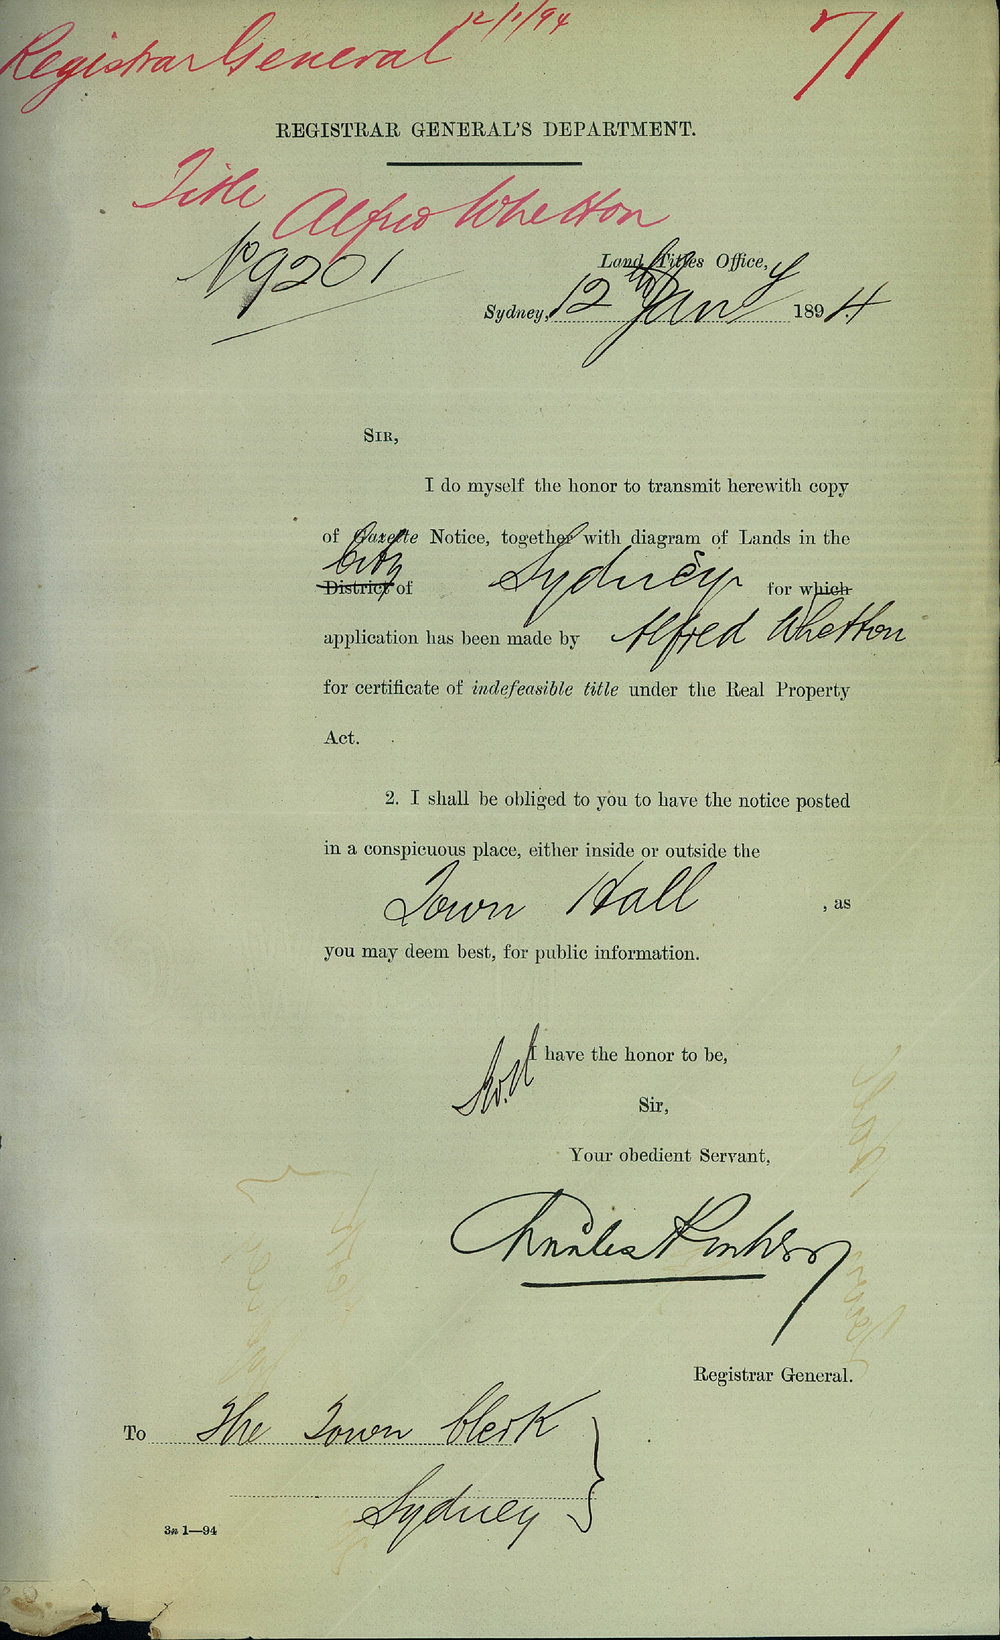 Registrar General 12/1/94
71
REGISTRAR GENERAL'S DEPARTMENT.
Title Alfred Whetton
No 9201
Land Titles Office,
Sydney, 12th Jany 1894.
SIR,
I do myself the honor to transmit herewith copy
of Gazette Notice, together with diagram of Lands in the
City
District of Sydney for which
application has been made by Alfred Whetton
for certificate of indefeasible title under the Real Property
Act.
2. I shall be obliged to you to have the notice posted
in a conspicuous place, either inside or outside the
Town Hall , as
you may deem best, for public information.
I have the honor to be,
Sir,
Your obedient Servant,
Charles
Registrar General.
To The Town Clerk
Sydney
3n 1—94